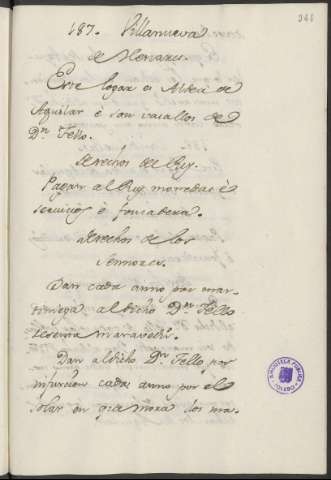 187. Villanueva
de Henares.
Este logar es Aldea de
Aguilar è son vasallos de
Dn. Tello.
derechos del Rey.
Pagan al Rey monedas è
servicios è fonsadera.
derechos de los
Sennores.
Dan cada anno por mar-
tiniega al dicho Dn. Tello
maravedis.
Dan al dicho Dn. Tello por
infurcion cada anno por el
solar en que mora dos ma-
BIBLIOTECA PUBLICA
TOLEDO